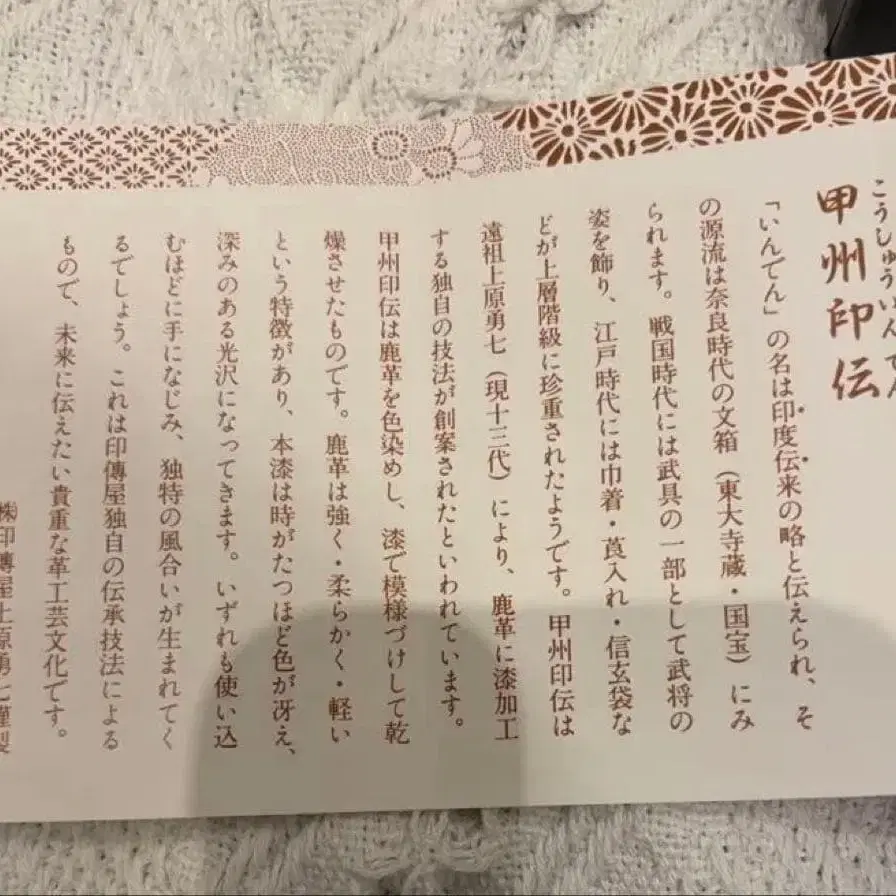 こうしゅういんでん
甲州印伝
「いんでん」の名は印度伝来の略と伝えられ、そ
の源流は奈良時代の文箱（東大寺蔵・国宝）にみ
られます。戦国時代には武具の一部として武将の
姿を飾り、江戸時代には巾着・莨入れ・信玄袋な
どが上層階級に珍重されたようです。甲州印伝は
遠祖上原勇七（現十三代）により、鹿革に漆加工
する独自の技法が創案されたといわれています。
甲州印伝は鹿革を色染めし、漆で模様づけして乾
燥させたものです。鹿革は強く・柔らかく・軽い
という特徴があり、本漆は時がたつほど色が冴え、
深みのある光沢になってきます。いずれも使い込
むほどに手になじみ、独特の風合いが生まれてく
るでしょう。これは印傳屋独自の伝承技法による
もので、未来に伝えたい貴重な革工芸文化です。
㈱印傳屋上原勇七謹製